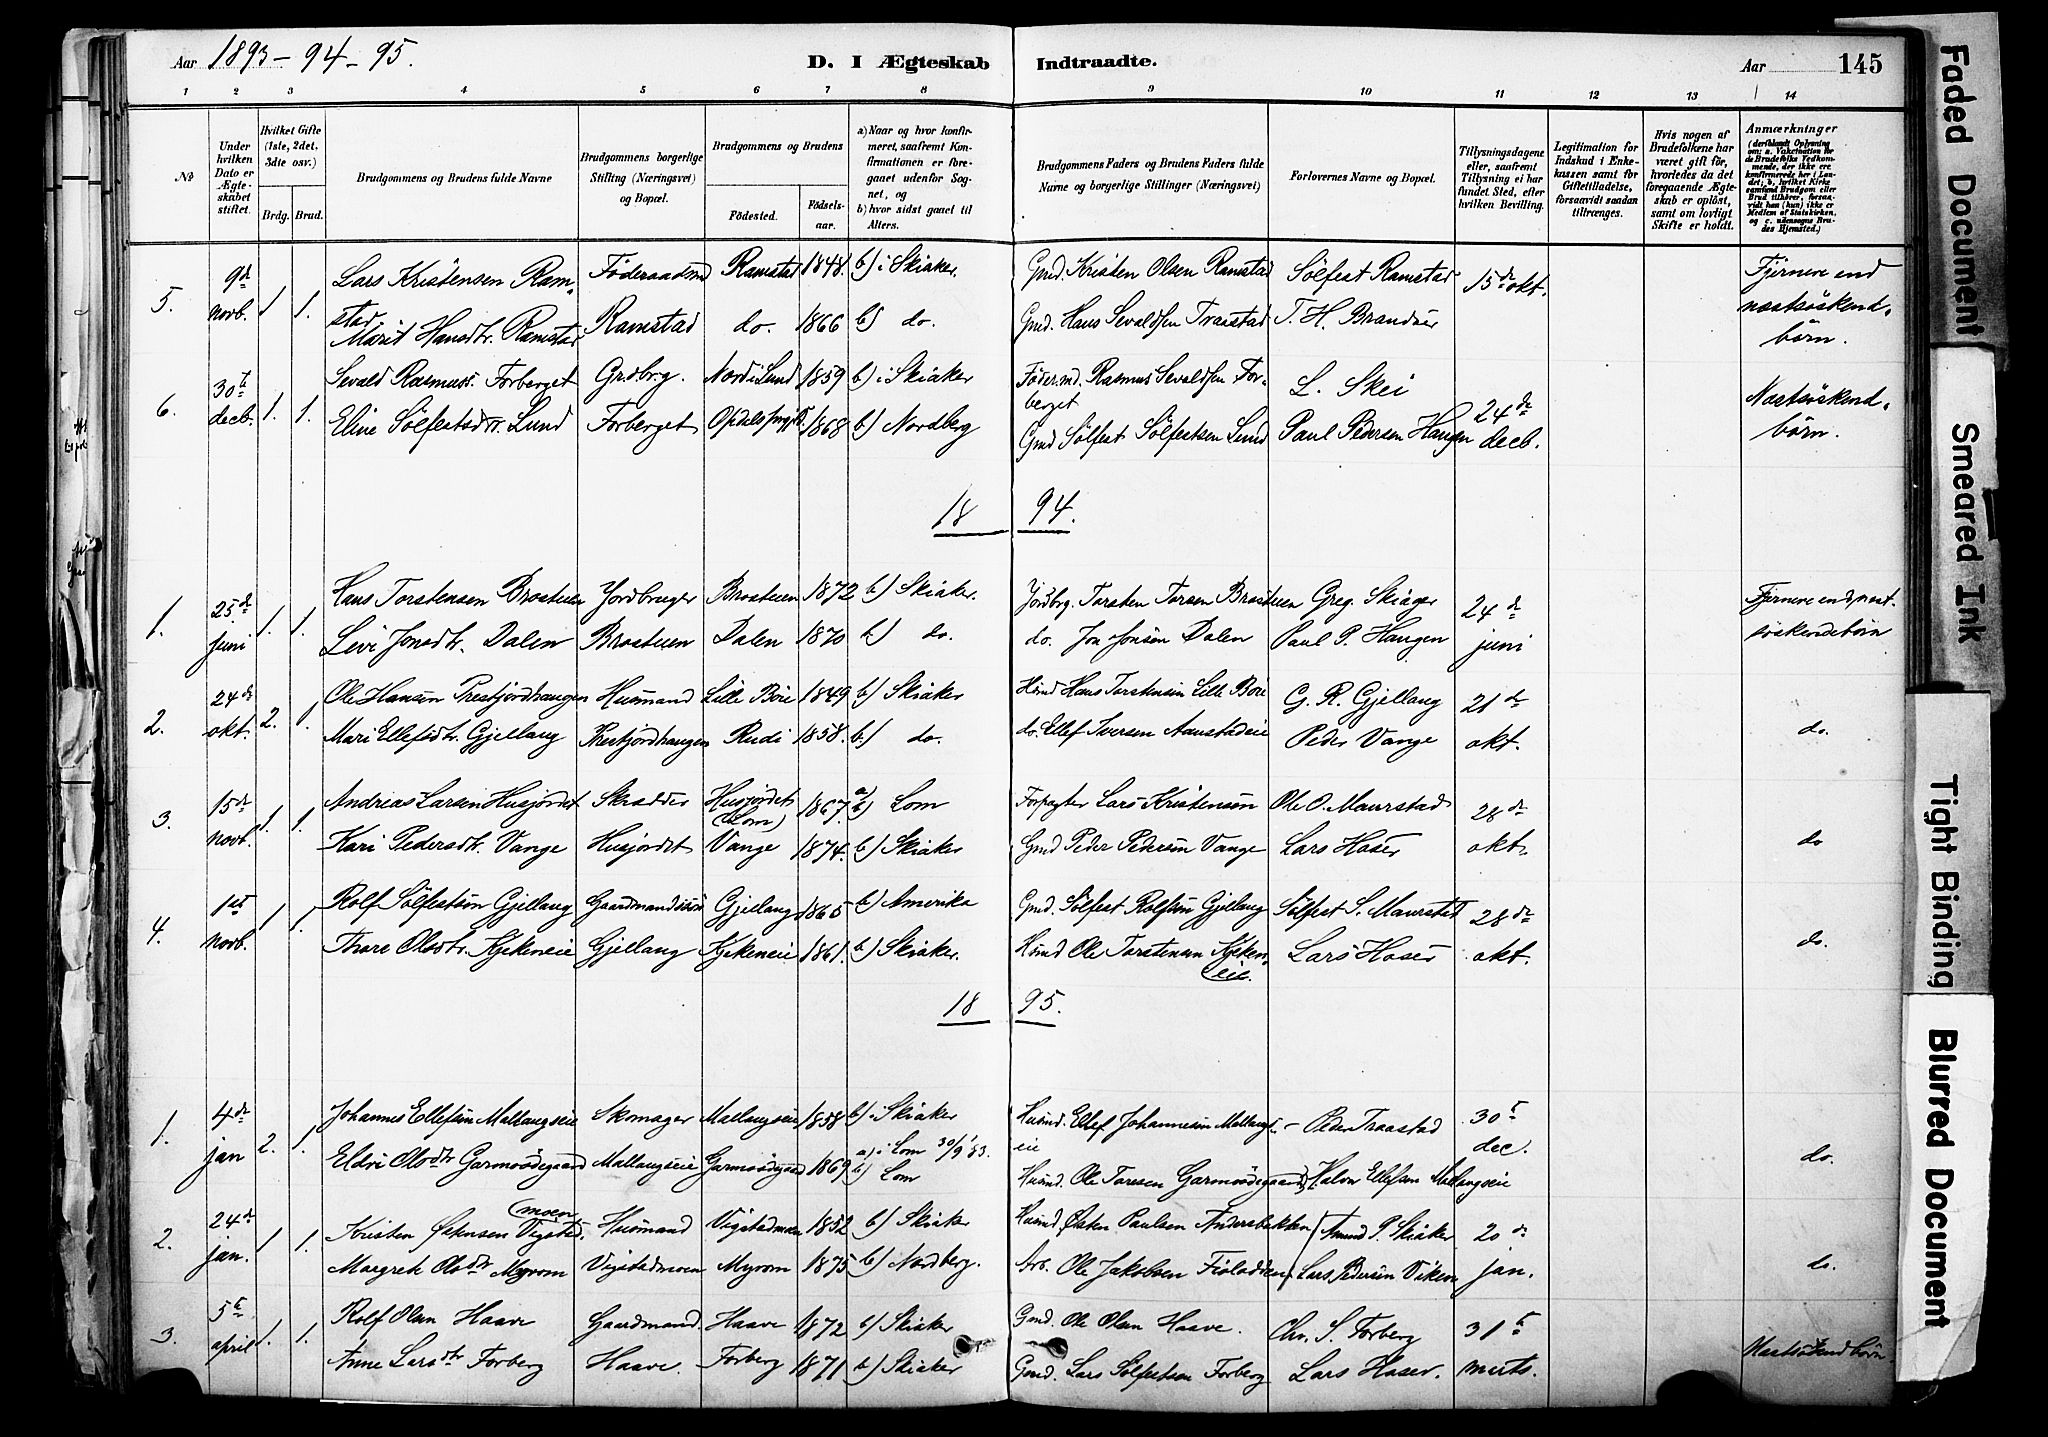 Aar 1893 – 94 – 95.
D. I Ægteskab Indtraadte.
Aar 145
1 2 3 4 5 6 7 8 9 10 11 12 13 14
No
Under hvilken Dato er Ægteskabet stiftet.
Hvilket Gifte (1ste, 2det, 3die osv.)
Brdg. Brud.
Brudgommens og Brudens fulde Navne
Brudgommens borgerlige Stilling (Næringsvei) og Bopæl.
Brudgommens og Brudens
Fødested. Fødselsaar.
a) Naar og hvor konfirmeret, saafremt Konfirmationen er foregaaet udenfor Sognet, og
b) hvor sidst gaaet til Alters.
Brudgommens Faders og Brudens Faders fulde Navne og borgerlige Stillinger (Næringsvei)
Forlovernes Navne og Bopæl.
Tillysningsdagene eller, saafremt Tillysning ei har fundet Sted, efter hvilken Bevilling.
Legitimation for Indskud i Enkekassen samt for Giftetilladelse, forsaavidt saadan tiltrænges.
Hvis nogen af Brudefolkene har været gift før, hvorledes da det foregaaende Ægteskab er opløst, samt om lovligt Skifte er holdt.
Anmærkninger (deriblandt Oplysning om: a. Vaktination for de Brudefolks Vedkommende, der ikke ere konfirmerede her i Landet; b, hvilket Kirkesamfund Brudgom eller Brud tilhører, forsaavidt han (hun) ikke er Medlem af Statskirken, og c. udensogns Brudes Hjemsted.)
5. 9de novb. 1 1. Lars Kristensen Ramstad Føderaadsmd Ramstad 1848. b) i Skiaker. Gmd. Kristen Olsen Ramstad Sølfest Ramstad 15de okt. Fjernere end næstsøskendbørn.
Marit Hansdtr. Ramstad Ramstad do. 1866 b) do. Gmd. Hans Sevaldsen Traastad T. H. Brandsær
6. 30te decb. 1. 1. Sevald Rasmuss. Forberget Grdbrg. Nordi Lund 1859 b) i Skiaker Føder.md. Rasmus Sevaldsen Forberget L. Skei 24de decb. Næstsøskendbørn.
Eline Sølfestsdtr. Lund Forberget 1868 b) Nordberg Gmd Sølfest Sølfestsen Lund Paul Pedersen Haugen
1894.
1. 25de juni 1. 1. Hans Torstensen Brostuen Jordbruger Brostuen 1872 b) Skiaker. Jordbrg. Torsten Torsen Brostuen Greg. Skiager 24de juni Fjernere end næstsøskendebørn
Livi Jonsdtr. Dalen Brostuen Dalen 1870 b) do. do. Jon Jonsen Dalen Paul P. Haugen
2. 24de okt. 2. 1. Ole Hansen Prestjordhaugen Husmand Lille Bøie 1849 b) Skiaker Hsmd Hans Torstensen Lille Bøie G. R. Gjellang 21de okt. do.
Mari Ellefsdtr. Gjellang Prestjordhaugen Rudi 1858. b.) do. do. Ellef Iversen Aanstadeie Peder Vange
3. 15de novb. 1. 1. Andreas Larsen Husjordet Skrædder Husjordet (Lom) 1867. a) b) Lom Forpagter Lars Kristensen Ole O. Maurstad 28de okt. do
Kari Pedersdtr. Vange Husjordet Vange 1874. b) Skiaker Gmd Peder Pedersen Vange Lars Haser
4. 1ste novb. 1 1. Rolf Sølfestsen Gjellang Gaardmandssøn Gjellang 1865 b) Amerika Gmd. Sølfest Rolfsen Gjellang Sølfest S. Maurstad 28de okt. do.
Thore Olsdtr. Kjekeneie Gjellang Kjekeneie 1861. b) Skiaker. Hsmd Ole Torstensen Kjekeneie. Lars Haser
1895.
1. 4de jan 2. 1. Johannes Ellefsen Mallangseie Skomager Mallangseie 1858 b) i Skiaker Husmd. Ellef Johannesen Mallangseie – Peder Traastad 30te dec. do.
Eldri Olsdtr Garmosødegaard Mallangseie Garmosødegaard 1869 a) i Lom 30/9 '83. b) Lom Husmd. Ole Toresen Garmosødegaard Halvor Ellefsen Mallangseie
2. 24de jan. 1 1. Kristen Østensen Vigstadmoen Husmand Vigstadmoen 1852 b) Skiaker Husmd Østen Paulsen Andersbakken Amund P. Skiaker 20de jan. do.
Margrete Olsdtr Myrom Vigstadmoen Myrom 1875 b) Nordberg. Arb. Ole Jakobsen Lars Pedersen Viken
3. 5te april 1. 1. Rolf Olsen Haave Gaardmand. Haave 1872 b) Skiaker Gmd. Ole Olsen Haave. Chr. S. Forberg 31te marts. Næstsøskendbørn.
Anne Larsdtr Forberg Haave. Forberg 1871 b) Skiaker Gmd. Lars Sølfestsen Forberg Lars Haser.
Faded Document
Smeared Ink
Tight Binding
Blurred Document